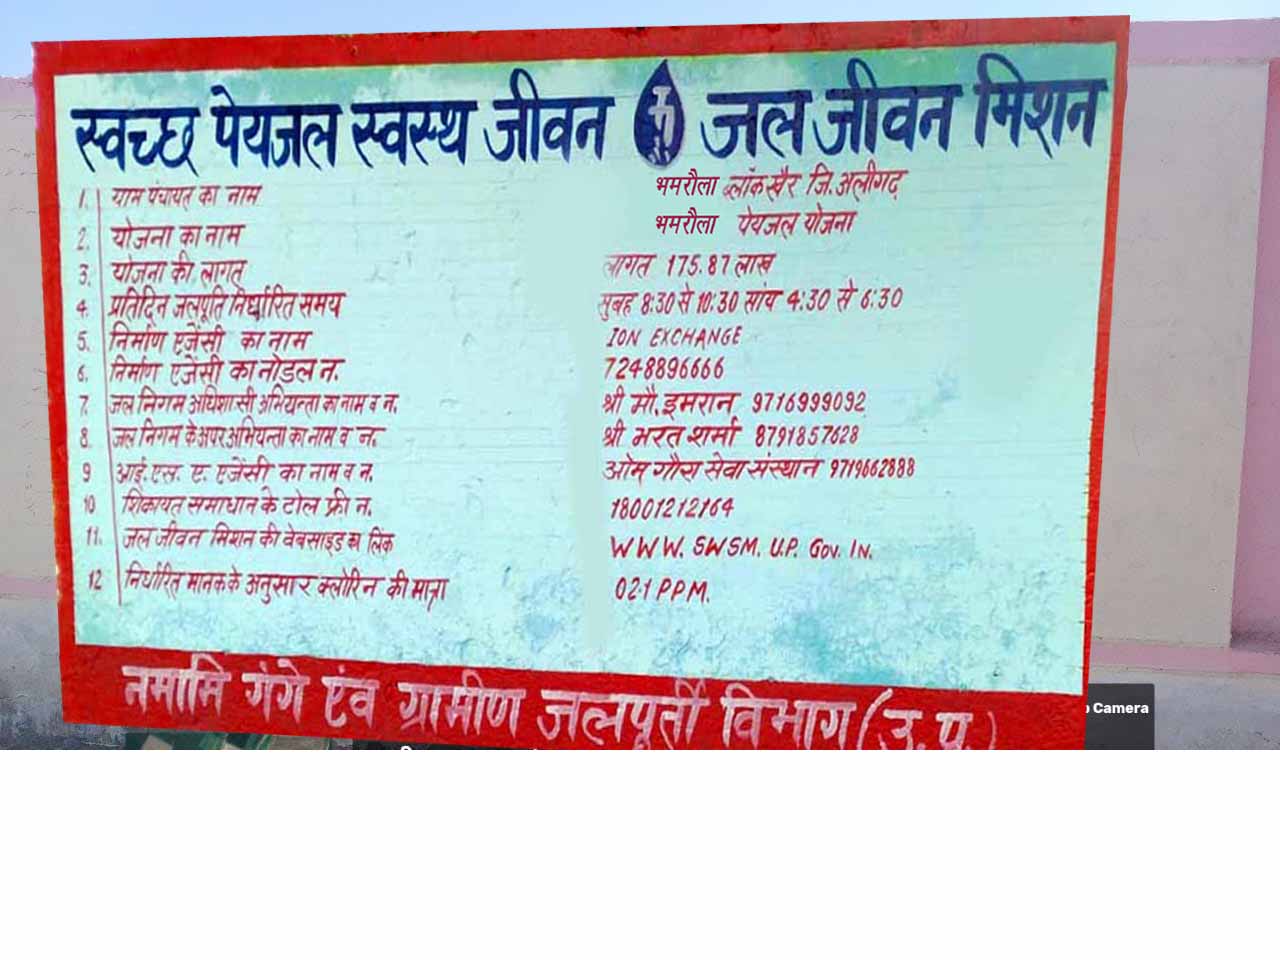 स्वच्छ पेयजल स्वस्थ जीवन जल जीवन मिशन
1. ग्राम पंचायत का नाम भमरौला ब्लॉक खैर जि. अलीगढ़
2. योजना का नाम भमरौला पेयजल योजना
3. योजना की लागत लागत 175.87 लाख
4. प्रतिदिन जलपूर्ति निर्धारित समय सुबह 8:30 से 10:30 सांय 4:30 से 6:30
5. निर्माण एजेंसी का नाम ION EXCHANGE
6. निर्माण एजेंसी का नोडल न. 7248896666
7. जल निगम अधिशासी अभियन्ता का नाम व न. श्री मौ. इमरान 9716999092
8. जल निगम के अपर अभियन्ता का नाम व न. श्री भरत शर्मा 8791857628
9 आई. एस. ए. एजेंसी का नाम व न. ओम् गौरा सेवा संस्थान 9719662888
10 शिकायत समाधान के टोल फ्री न. 18001212164
11. जल जीवन मिशन की वेबसाइड का लिंक WWW. SWSM. U.P. Gov. In.
12 निर्धारित मानक के अनुसार क्लोरिन की मात्रा 02.1 PPM.
नमामि गंगे एंव ग्रामीण जलपूर्ती विभाग (उ.प्र.)
Camera